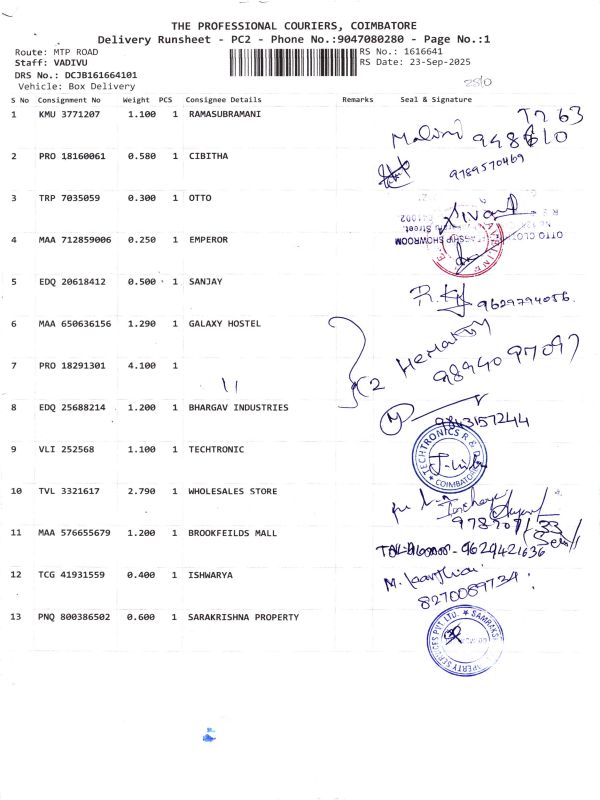 THE PROFESSIONAL COURIERS, COIMBATORE
Delivery Runsheet - PC2 - Phone No.:9047080280 - Page No.:1
Route: MTP ROAD
RS No.: 1616641
Staff: VADIVU
RS Date: 23-Sep-2025
DRS No.: DCJB161664101
Vehicle: Box Delivery
S No Consignment No Weight PCS Consignee Details Remarks Seal & Signature
1 KMU 3771207 1.100 1 RAMASUBRAMANI
2 PRO 18160061 0.580 1 CIBITHA
9789570469
3 TRP 7035059 0.300 1 OTTO
4 MAA 712859006 0.250 1 EMPEROR
OTTO SHOWROOM
5 EDQ 20618412 0.500 1 SANJAY
9629794056
6 MAA 650636156 1.290 1 GALAXY HOSTEL
7 PRO 18291301 4.100 1
9894097097
11
8 EDQ 25688214 1.200 1 BHARGAV INDUSTRIES
9843157244
9 VLI 252568 1.100 1 TECHTRONIC
TECHTRONICS R & D
COIMBATORE
10 TVL 3321617 2.790 1 WHOLESALES STORE
11 MAA 576655679 1.200 1 BROOKFEILDS MALL
9629421636
12 TCG 41931559 0.400 1 ISHWARYA
8270089734
13 PNQ 800386502 0.600 1 SARAKRISHNA PROPERTY